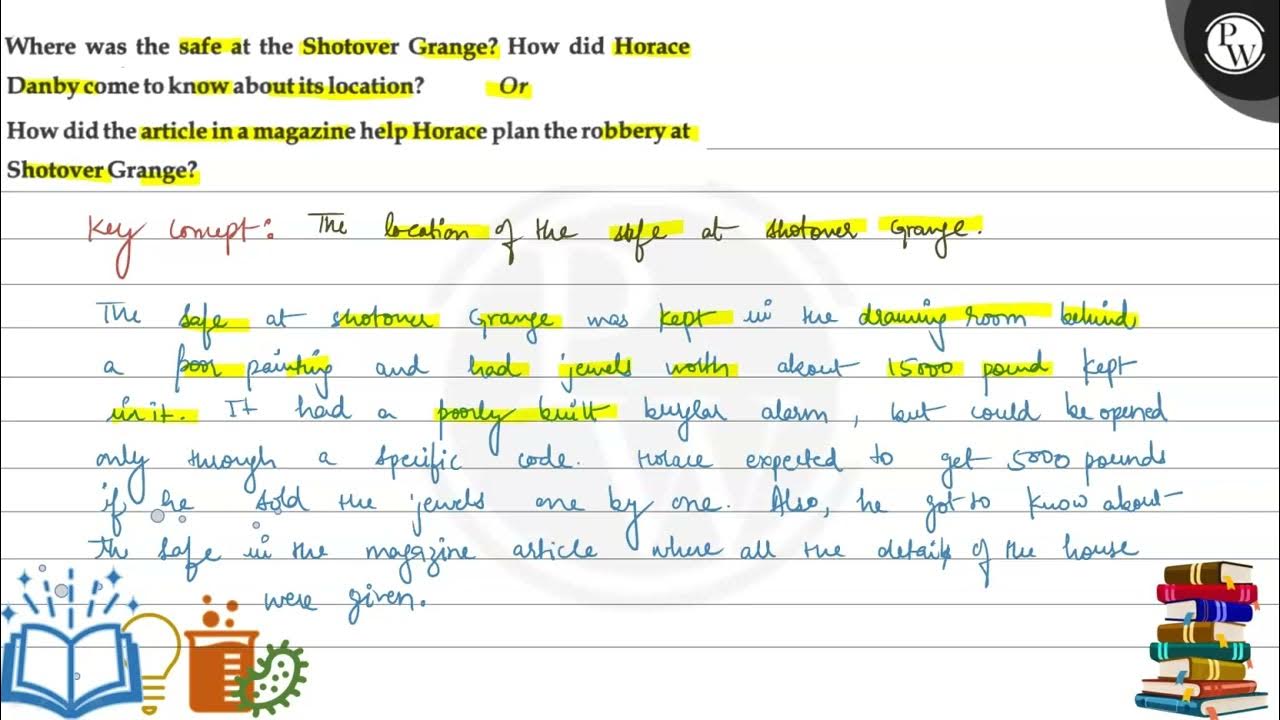 Where was the safe at the Shotover Grange? How did Horace
Danby come to know about its location? Or
How did the article in a magazine help Horace plan the robbery at
Shotover Grange?
P
W
Key concept: The location of the safe at shotover Grange.
The safe at shotover Grange was kept in the drawing room behind
a poor painting and had jewels worth about 15000 pound kept
in it. It had a poorly built burglar alarm, but could be opened
only through a specific code. Horace expected to get 5000 pounds
if he sold the jewels one by one. Also, he got to know about
the safe in the magazine article where all the details of the house
were given.